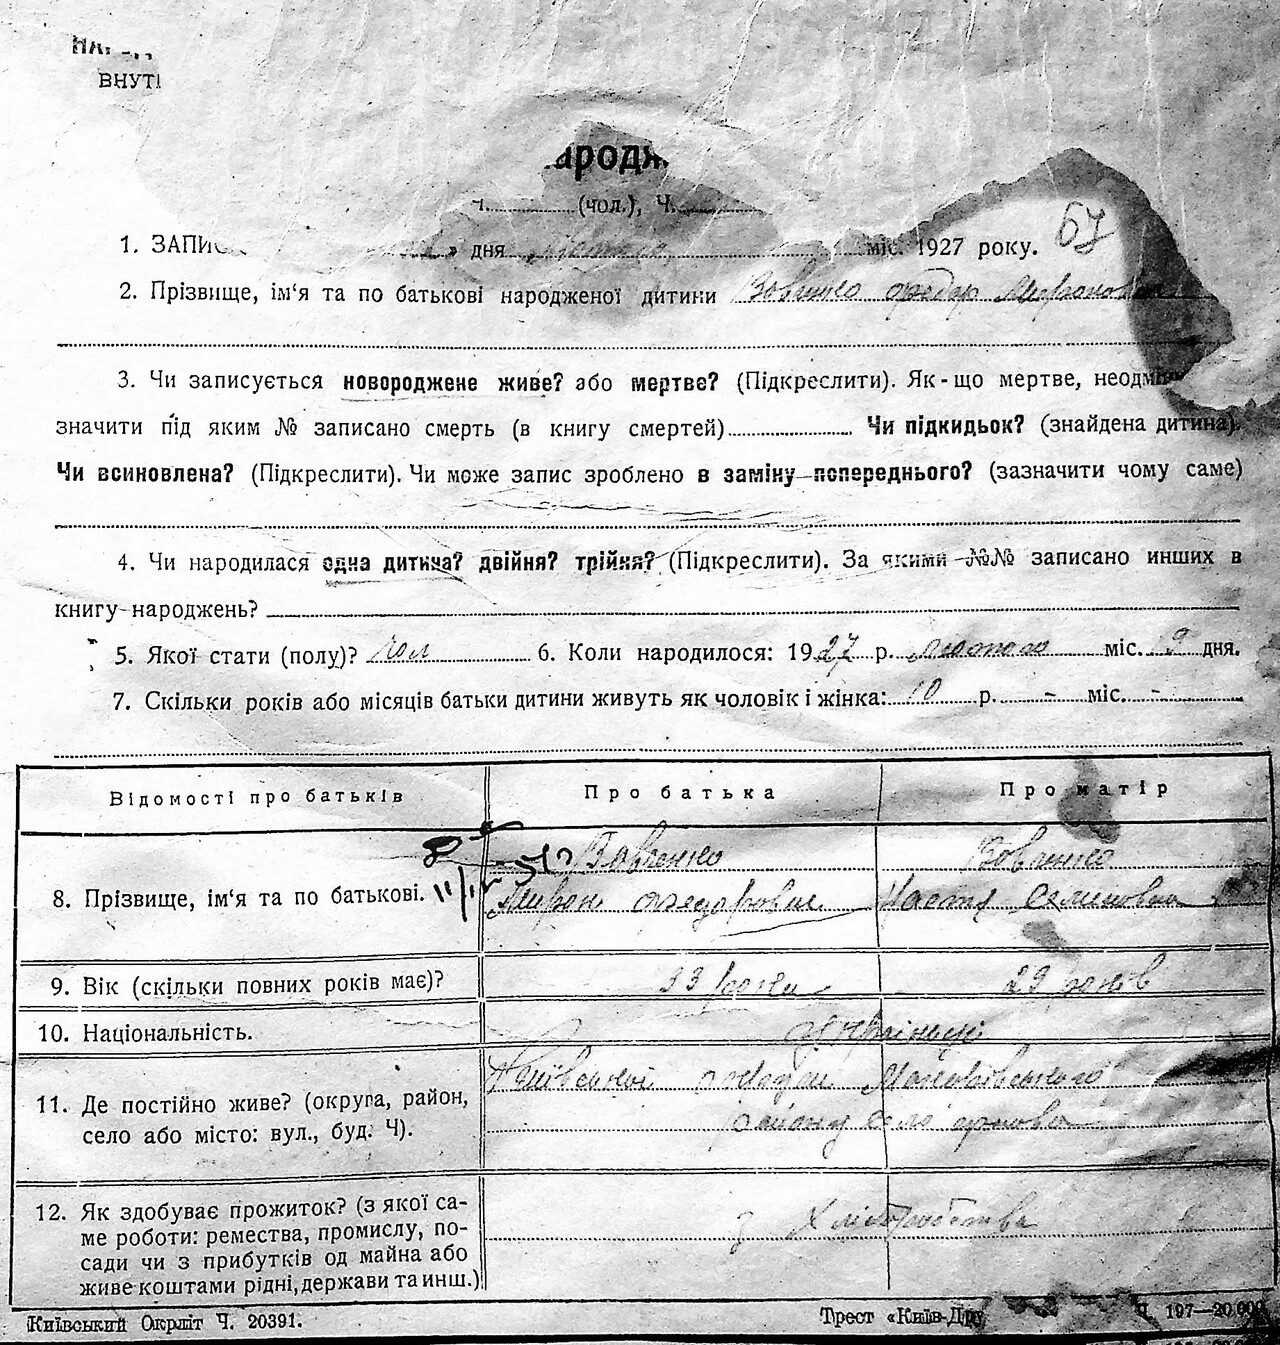 ВНУТІ
ародж
(чол.), Ч.
1. ЗАПИС » дня міс. 1927 року. 67
2. Прізвище, ім'я та по батькові народженої дитини Вовченко Федор Миронович
3. Чи записується новороджене живе? або мертве? (Підкреслити). Як-що мертве, неодмі
значити під яким № записано смерть (в книгу смертей) Чи підкидьок? (знайдена дитина).
Чи всиновлена? (Підкреслити). Чи може запис зроблено в заміну попереднього? (зазначити чому саме)
4. Чи народилася одна дитина? двійня? трійня? (Підкреслити). За якими №№ записано инших в
книгу народжень?
5. Якої стати (полу)? чол 6. Коли народилося: 1927 р. лютого міс. 9 дня.
7. Скільки років або місяців батьки дитини живуть як чоловік і жінка: 10 р. - міс. -
Відомості про батьків Про батька Про матір
Вовченко Вовченко
8. Прізвище, ім'я та по батькові. Мирон Федорович Настя Семеновна
9. Вік (скільки повних років має)? 33 роки 29 років
10. Національність. Українці
Київської округи
11. Де постійно живе? (округа, район,
району село
село або місто: вул., буд. Ч).
12. Як здобуває прожиток? (з якої са-
з Хліборобства
ме роботи: ремества, промислу, по-
сади чи з прибутків од майна або
живе коштами рідні, держави та инш.)
Київський Окрліт Ч. 20391. Трест «Київ-Дру Ч. 197—20.000